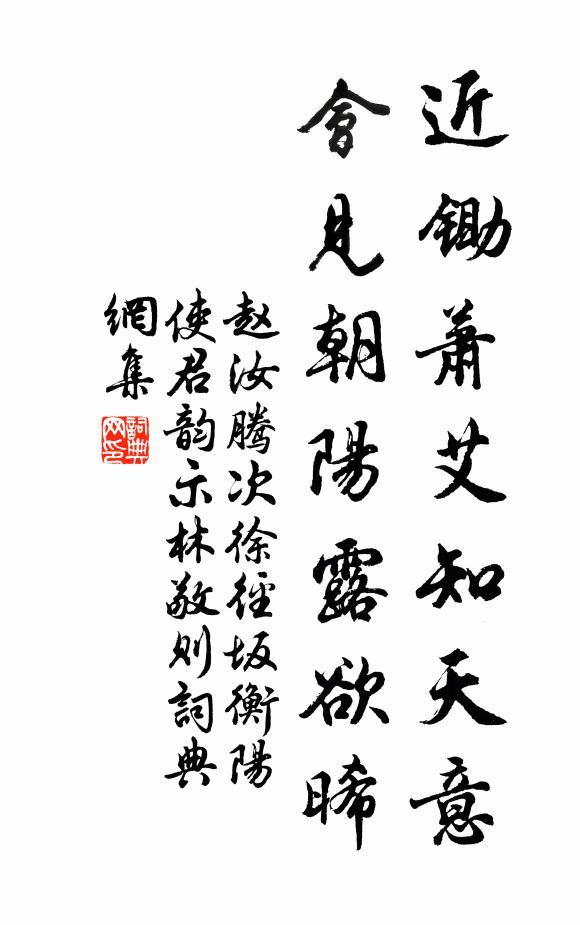 近鋤蕭艾知天意
會見朝陽露欲晞
赵汝騰次徐徑坂衡陽
使君韵示林敬则詞典
網集
詞典网印